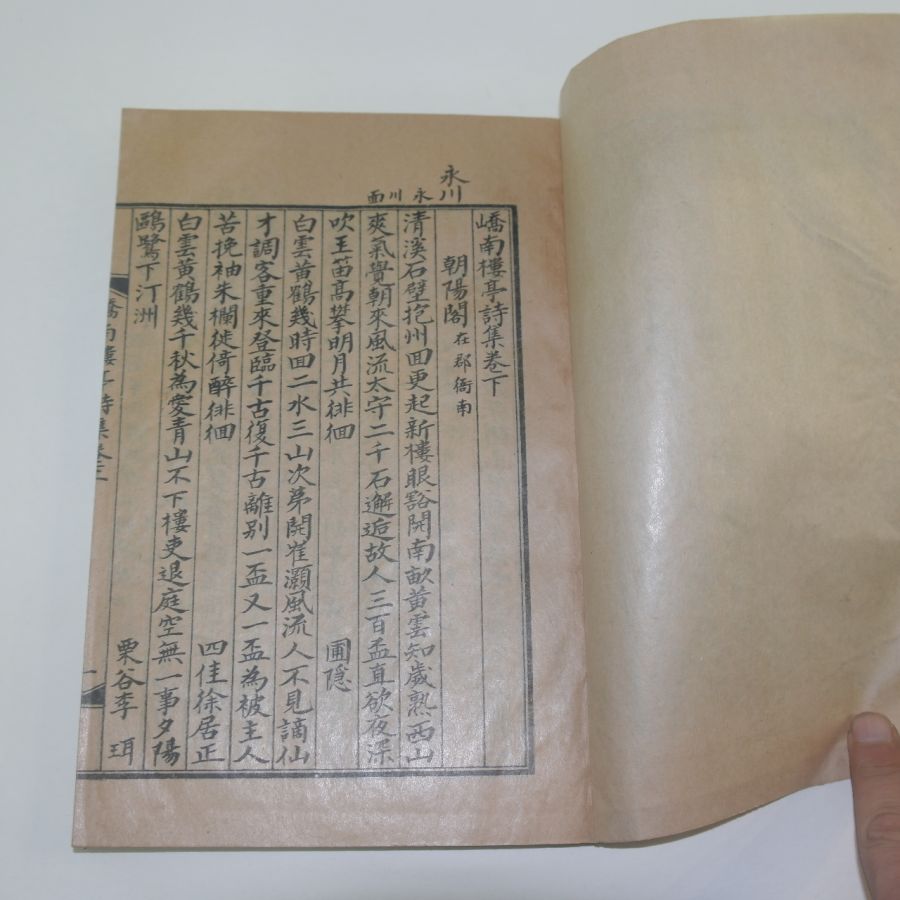 永川
永川面
嶠南樓亭詩集卷下
朝陽閣 在郡衙南
清溪石壁抱州回更起新樓眼豁開南畝黄雲知歲熟西山
爽氣覺朝來風流太守二千石邂逅故人三百盃直欲夜深
吹玉笛高攀明月共徘徊
圃隱
白雲黄鶴幾時回二水三山次第開崔灝風流人不見謫仙
才調客重來登臨千古復千古離别一盃又一盃為被主人
苦挽袖朱欄徙倚醉徘徊
四佳徐居正
白雲黄鶴幾千秋為愛青山不下樓吏退庭空無一事夕陽
鷗鷺下汀洲
栗谷李珥
嶠南樓亭詩集卷